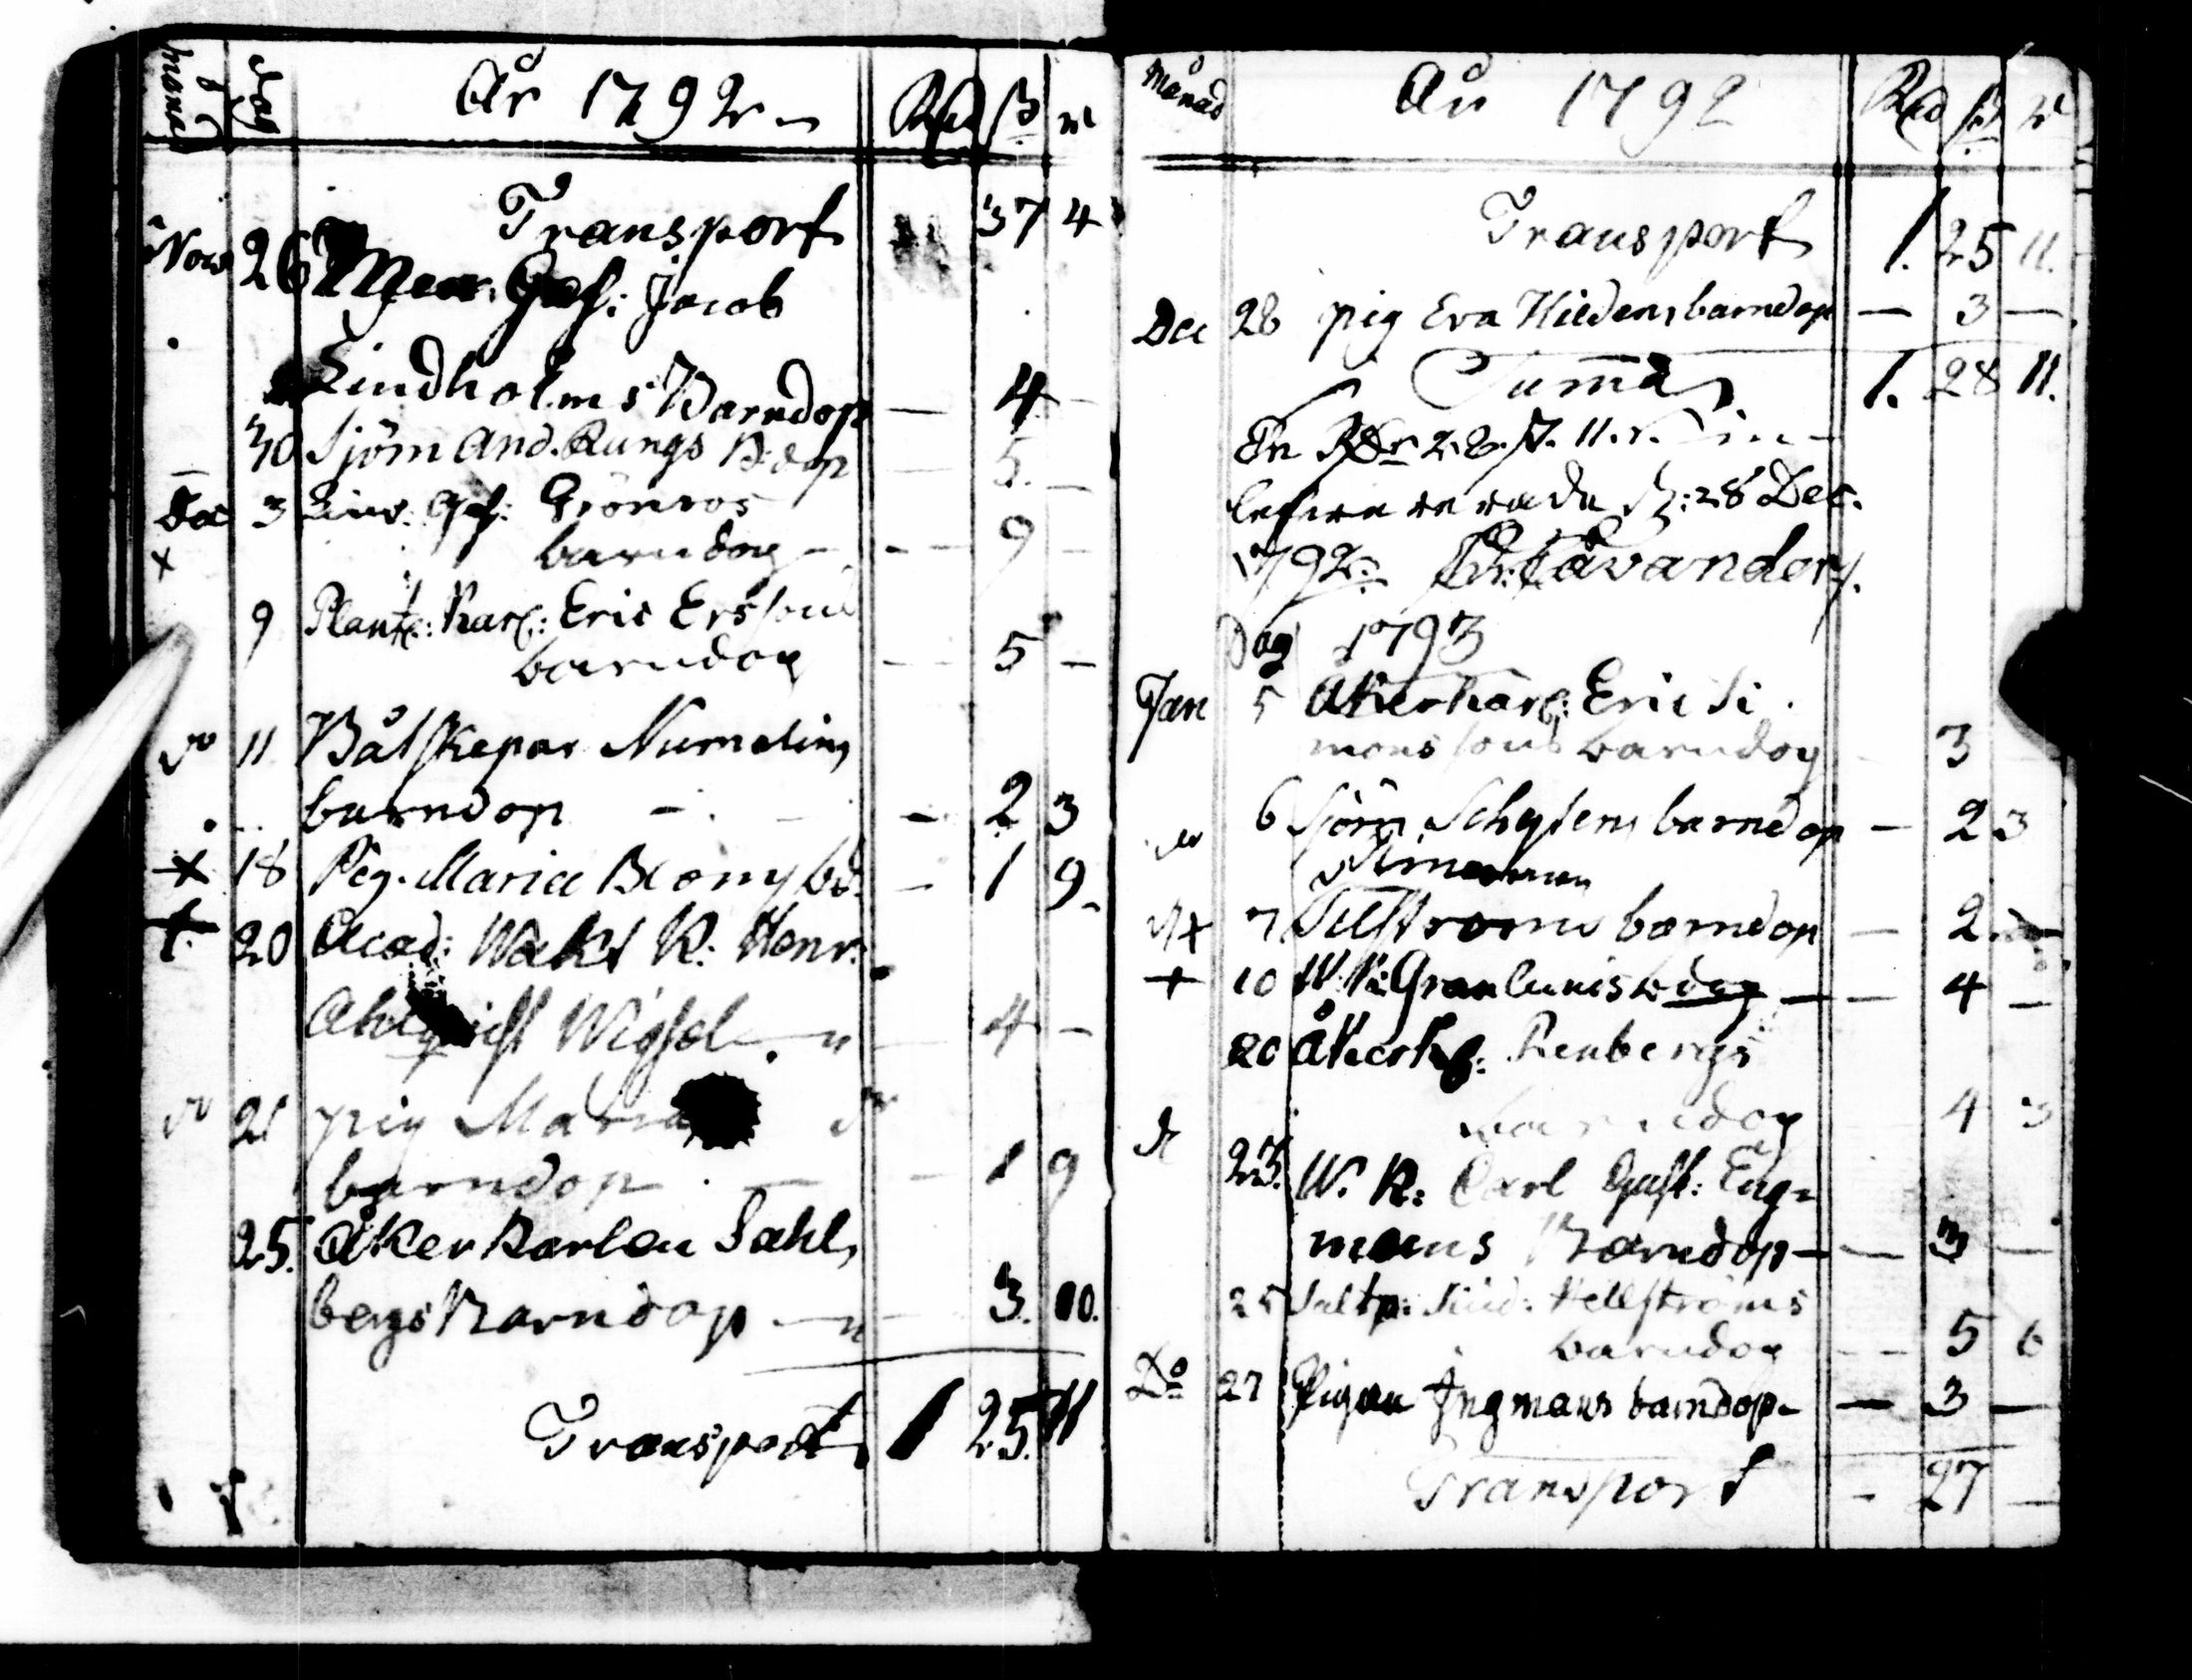 månad Dag År 1792 Rd ß rs
Transport 37 4
Nov 26 Gesf: Jacob
Lindholms Barndop — 4 –
30 Sjöm And. Rungs B:dop — 5. –
Dec 3 Gesf: Grönroos
barndop – 9 –
9 Karl: Eric Erssons
barndop — 5 –
do 11 Båtskepar Numelins
barndop – 2 3
+ 18 Pig. Maria Bloms bd. – 1 9
+ 20 Acad: Wakt K: Henr:
Wigsel 4 –
do 21 pig Maria
barndop – 1 9
25. Åker Karlen Sahl,
bergs Barndop — 3. 10.
Transport 1 25. 11
Månad År 1792 Rd ß rs
Transport 1. 25 11.
Dec 28 pig Eva Kiledens barndop — 3 —
Summa 1. 28 11.
En Rdr 28 ß. 11. r. in-
lefwererade d: 28 Dec.
1792. Tåvander.
Dag 1793
Jan 5 Åkerkarl: Eric Si
monssons barndop 3
do 6 Sjöm Schylens barndop — 2 3
+ 7 barndop — 2
+ 10 W. K: Granlunds bdop — 4 –
20 Åkerk: Renbergs
barndop 4 3
d 23. W. K: Carl Gust: Eng-
mans Barndop — 3 —
25 Hellströms
barndop — 5 6
Do 27 Pigan Ingmans barndop — 3 —
Transport – 27 —